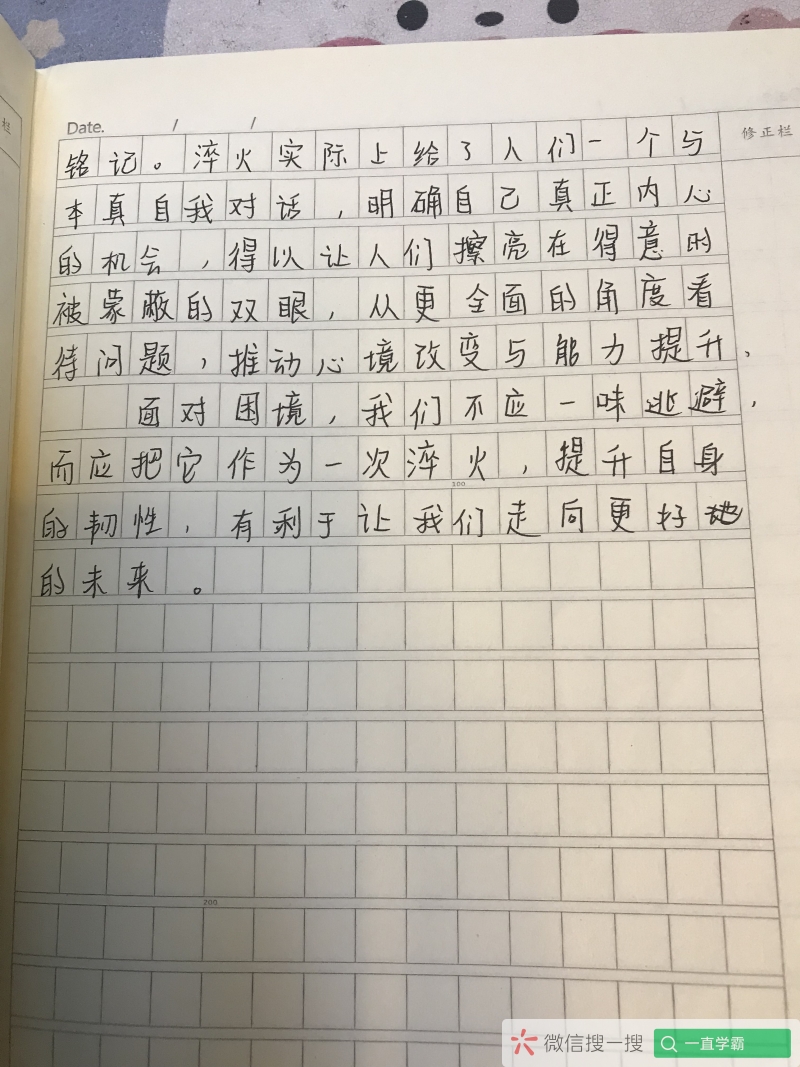 Date. / /
修正栏
铭记。淬火实际上给了人们一个与
本真自我对话，明确自己真正内心
的机会，得以让人们擦亮在得意时
被蒙蔽的双眼，从更全面的角度看
待问题，推动心境改变与能力提升。
面对困境，我们不应一味逃避，
而应把它作为一次淬火，提升自身
100
的韧性，有利于让我们走向更好地
的未来。
200
微信搜一搜 一直学霸